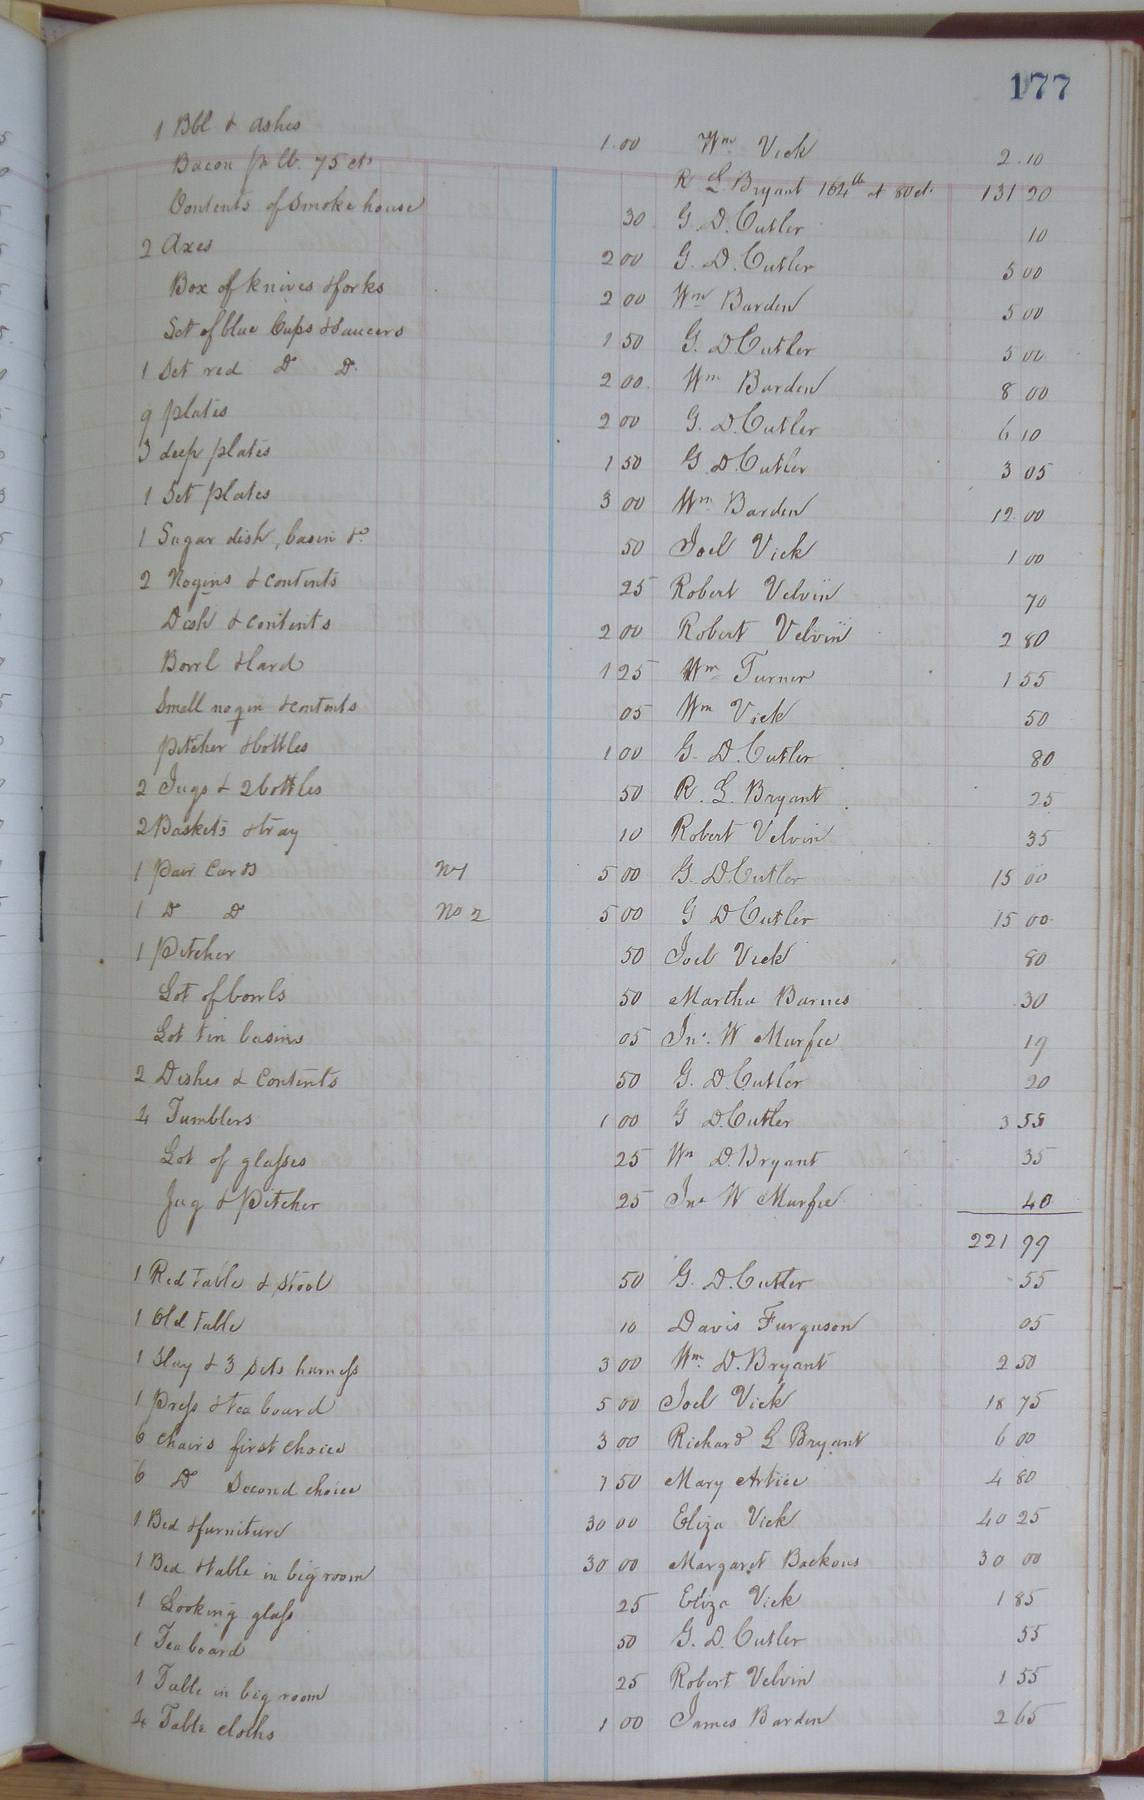 177
1 Bbl & Ashes 1.00 Wm Vick 2.10
Bacon pr lb. 75 cts R L Bryant 164 lb at 80 ct. 131 20
Contents of Smoke house 30 G. D. Cutler 10
2 Axes 2 00 G. D. Cutler 5 00
Box of knives & forks 2 00 Wm Barden 5 00
Set of blue Cups & Saucers 1 50 G. D Cutler 5 00
1 Set red Do Do. 2 00 Wm Barden 8 00
9 plates 2 00 G. D. Cutler 6 10
3 deep plates 1 50 G D. Cutler 3 05
1 Set plates 3 00 Wm Barden 12 00
1 Sugar dish, basin &c 50 Joel Vick 1 00
2 Nogins & contents 25 Robert Velvin 70
Dish & contents 2 00 Robert Velvin 2 80
Bowl & lard 1 25 Wm Turner 1 55
Small nogin & contents 05 Wm Vick 50
Pitcher & bottles 1 00 G. D. Cutler 80
2 Jugs & 2 bottles 50 R. L. Bryant 25
2 Baskets & tray 10 Robert Velvin 35
1 pair Cards No 1 5 00 G. D Cutler 15 00
1 Do Do No 2 5 00 G D Cutler 15 00
1 Pitcher 50 Joel Vick 80
Lot of bowls 50 Martha Barnes 30
Lot tin basins 05 Jno. W Murfee 19
2 Dishes & Contents 50 G. D. Cutler 20
4 Tumblers 1 00 G D. Cutler 3 55
Lot of glasses 25 Wm D. Bryant 35
Jug & Pitcher 25 Jno W Murfee 40
221 99
1 Red Table & Stool 50 G. D. Cutler 55
1 Old Table 10 Davis Furguson 05
1 Slay & 3 Sets harness 3 00 Wm D. Bryant 2 50
1 press & tea board 5 00 Joel Vick 18 75
6 chairs first choice 3 00 Richard L Bryant 6 00
6 Do Second choice 1 50 Mary 4 80
1 Bed & furniture 30 00 Eliza Vick 40 25
1 Bed & table in big room 30 00 Margaret Backous 30 00
1 Looking glass 25 Eliza Vick 1 85
1 Tea board 50 G. D. Cutler 55
1 Table in big room 25 Robert Velvin 1 55
4 Table cloths 1 00 James Barden 2 65